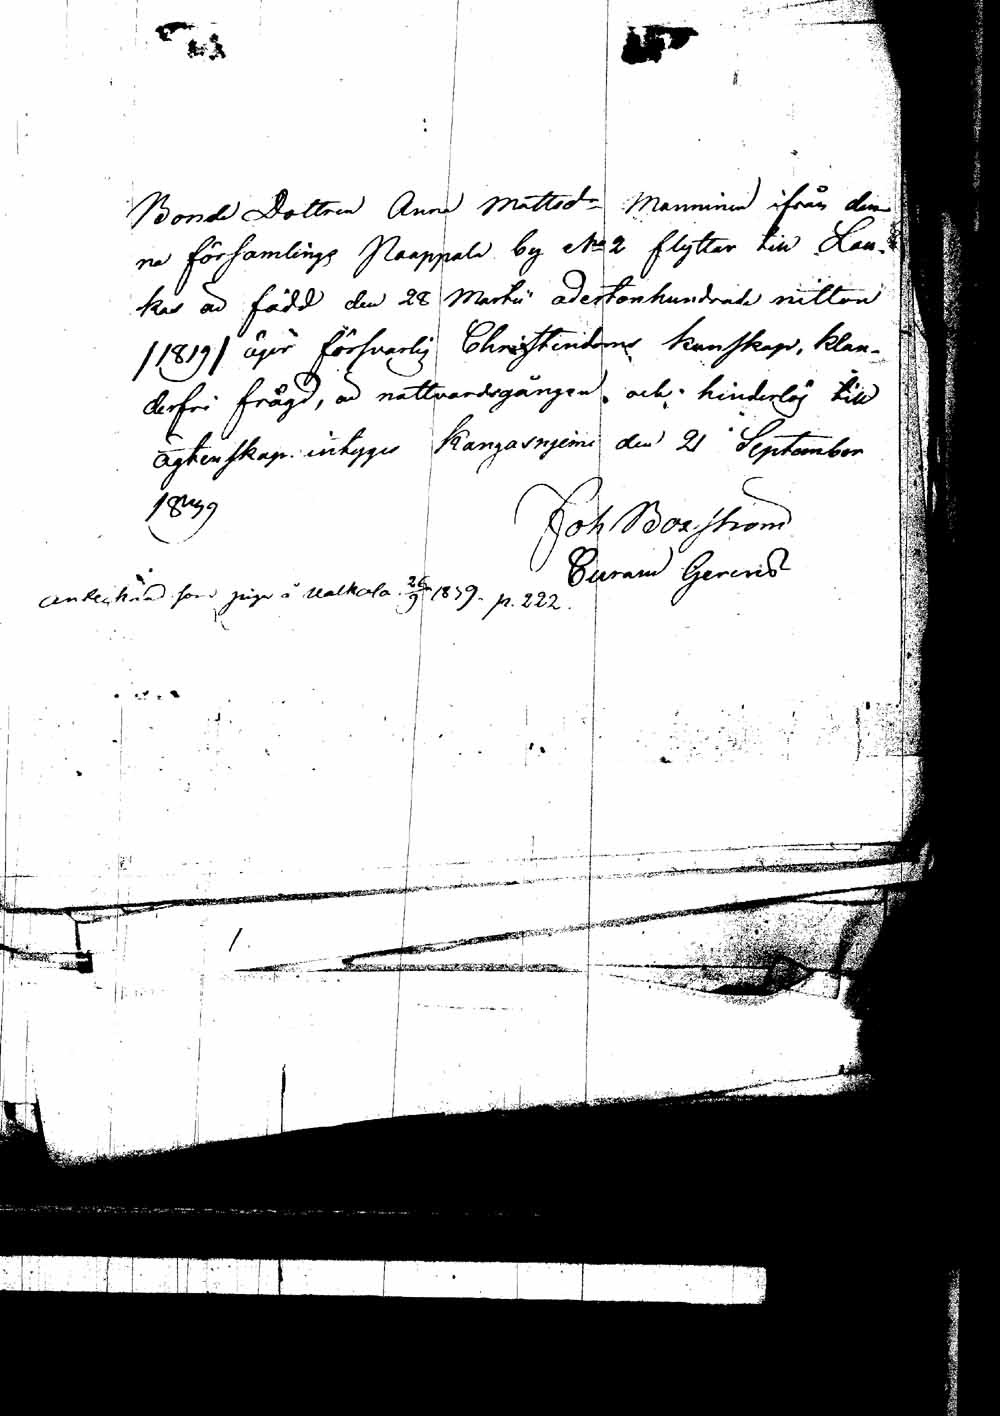 Bonde Dottren Anna Mattsdr Manninen ifrån den
na församlings Naappala by No 2 flyttar till Lau-
kas är född den 28 Martii adertonhundrade nitton
/1819/ äger försvarlig Christendoms kunskap, klan-
derfri frägd, är nattvardsgången, och hinderlös till
ägtenskap. intygges Kangasnjemi den 21 September
1839
Joh Boxström
Curam Gerens
Antecknad som piga å Valkola 26/9 1839. p. 222.